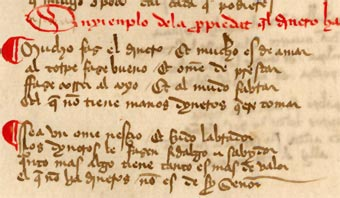 mucho o poco dal cada q podieres
Enxienplo dela ppiedat ql dinero ha
Mucho faz el dinero Et mucho es de amar
al torpe faze bueno Et ome de prestar
ffaze correr al coxo Et al mudo fablar
El q no tiene manos dyneros quier tomar
Sea vn ome nesçio Et Rudo labrador
Los dyneros le fazen fidalgo e sabydor
Quanto mas algo tiene tanto es mas de valor
El q no ha dineros no es de sy Señor